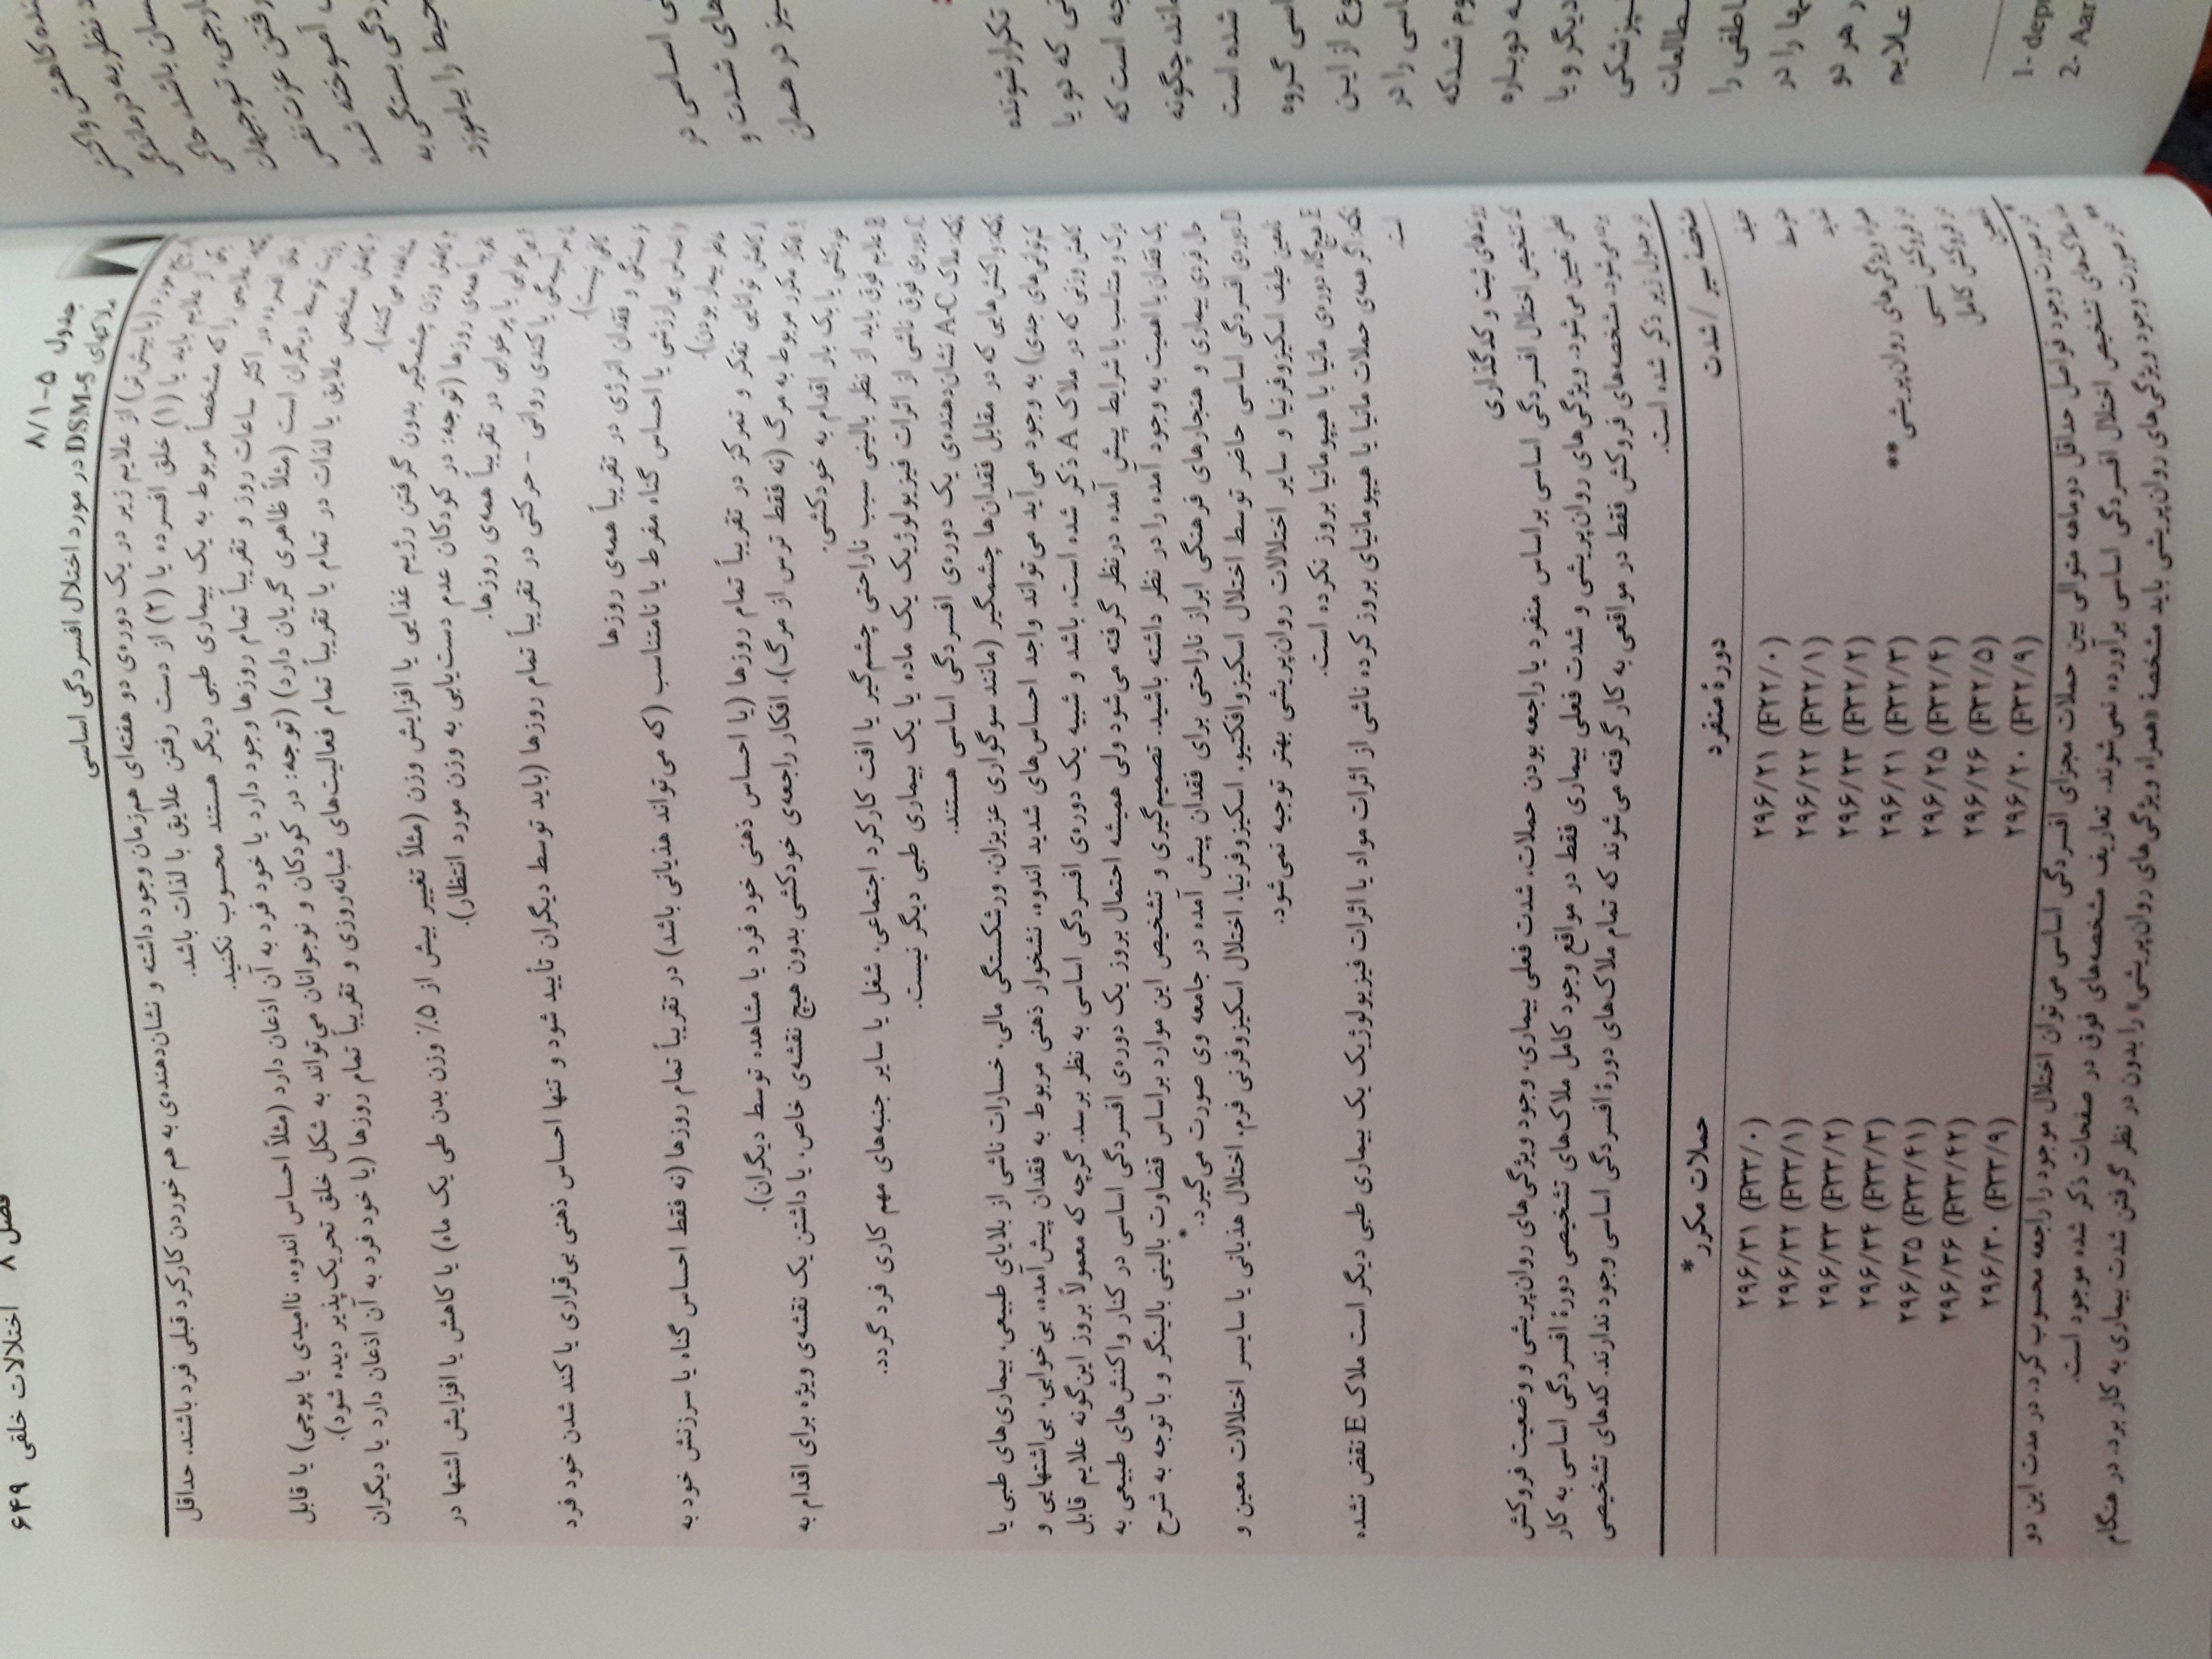 فصل ۸ اختلالات خلقی ۶۴۹
جدول ۵-۸/۱
ملاکهای DSM-5 در مورد اختلال افسردگی اساسی
مورد (یا بیش‌تر) از علایم زیر در یک دوره‌ی دو هفته‌ای هم‌زمان وجود داشته و نشان‌دهنده‌ی به هم خوردن کارکرد قبلی فرد باشند، حداقل
یکی از علایم باید یا (۱) خلق افسرده یا (۲) از دست رفتن علایق یا لذات باشد.
علایمی را که مشخصاً مربوط به یک بیماری طبی دیگر هستند محسوب نکنید.
خلق افسرده در اکثر ساعات روز و تقریباً تمام روزها وجود دارد یا خود فرد به آن اذعان دارد (مثلاً احساس اندوه، ناامیدی یا پوچی) یا قابل
رؤیت توسط دیگران است (مثلاً ظاهری گریان دارد) (توجه: در کودکان و نوجوانان می‌تواند به شکل خلق تحریک‌پذیر دیده شود).
کاهش مشخص علایق یا لذات در تمام یا تقریباً تمام فعالیت‌های شبانه‌روزی و تقریباً تمام روزها (یا خود فرد به آن اذعان دارد یا دیگران
مشاهده می‌کنند).
کاهش وزن چشمگیر بدون گرفتن رژیم غذایی یا افزایش وزن (مثلاً تغییر بیش از ۵٪ وزن بدن طی یک ماه) یا کاهش یا افزایش اشتها در
تقریباً همه‌ی روزها (توجه: در کودکان عدم دست‌یابی به وزن مورد انتظار).
بی‌خوابی یا پرخوابی در تقریباً همه‌ی روزها.
یا کندی روانی - حرکتی در تقریباً تمام روزها (باید توسط دیگران تأیید شود و تنها احساس ذهنی بی‌قراری یا کند شدن خود فرد
کافی نیست).
خستگی و فقدان انرژی در تقریباً همه‌ی روزها
احساس بی‌ارزشی یا احساس گناه مفرط یا نامتناسب (که می‌تواند هذیانی باشد) در تقریباً تمام روزها (نه فقط احساس گناه یا سرزنش خود به
خاطر بیمار بودن).
کاهش توانایی تفکر و تمرکز در تقریباً تمام روزها (یا احساس ذهنی خود فرد یا مشاهده توسط دیگران).
افکار مکرر مربوط به مرگ (نه فقط ترس از مرگ)، افکار راجعه‌ی خودکشی بدون هیچ نقشه‌ی خاص، یا داشتن یک نقشه‌ی ویژه برای اقدام به
خودکشی یا یک بار اقدام به خودکشی.
B علایم فوق باید از نظر بالینی سبب ناراحتی چشم‌گیر یا افت کارکرد اجتماعی، شغل یا سایر جنبه‌های مهم کاری فرد گردد.
C دوره‌ی فوق ناشی از اثرات فیزیولوژیک یک ماده یا یک بیماری طبی دیگر نیست.
نکته: ملاک A-C نشان‌دهنده‌ی یک دوره‌ی افسردگی اساسی هستند.
نکته: واکنش‌هایی که در مقابل فقدان‌ها چشمگیر (مانند سوگواری عزیزان، ورشکستگی مالی، خسارات ناشی از بلایای طبیعی، بیماری‌های طبی یا
های جدی) به وجود می‌آید می‌تواند واجد احساس‌های شدید اندوه، نشخوار ذهنی مربوط به فقدان پیش‌آمده، بی‌خوابی، بی‌اشتهایی و
کاهش وزنی که در ملاک A ذکر شده است، باشد و شبیه یک دوره‌ی افسردگی اساسی به نظر برسد. گرچه که معمولاً بروز این‌گونه علایم قابل
درک و متناسب با شرایط پیش آمده در نظر گرفته می‌شود ولی همیشه احتمال بروز یک دوره‌ی افسردگی اساسی در کنار واکنش‌های طبیعی به
یک فقدان با اهمیت به وجود آمده را در نظر داشته باشید. تصمیم‌گیری و تشخیص این موارد براساس قضاوت بالینی بالینگر و با توجه به شرح
حال فردی بیماری و هنجارهای فرهنگی ابراز ناراحتی برای فقدان پیش آمده در جامعه وی صورت می‌گیرد.*
D دوره‌ی افسردگی اساسی حاضر توسط اختلال اسکیزوافکتیو، اسکیزوفرنیا، اختلال اسکیزوفرنی فرم، اختلال هذیانی یا سایر اختلالات معین و
نامعین طیف اسکیزوفرنیا و سایر اختلالات روان‌پریشی بهتر توجیه نمی‌شود.
E هیچگاه دوره‌ی مانیا یا هیپومانیا بروز نکرده است.
نکته: اگر همه‌ی حملات مانیا یا هیپومانیای بروز کرده ناشی از اثرات مواد یا اثرات فیزیولوژیک یک بیماری طبی دیگر است ملاک E نقض نشده
است.
روندهای ثبت و کدگذاری
کد تشخیص اختلال افسردگی اساسی براساس منفرد یا راجعه بودن حملات، شدت فعلی بیماری، وجود ویژگی‌های روان‌پریشی و وضعیت فروکش
فعلی تعیین می‌شود. ویژگی‌های روان‌پریشی و شدت فعلی بیماری فقط در مواقع وجود کامل ملاک‌های تشخیصی دورهٔ افسردگی اساسی به کار
برده می‌شود. مشخصه‌های فروکش فقط در مواقعی به کار گرفته می‌شوند که تمام ملاک‌های دورهٔ افسردگی اساسی وجود ندارند. کدهای تشخیصی
در جدول زیر ذکر شده است.
مشخصه سیر / شدت دورهٔ منفرد حملات مکرر*
خفیف ۲۹۶/۲۱ (F۳۲/۰) ۲۹۶/۳۱ (F۳۳/۰)
متوسط ۲۹۶/۲۲ (F۳۲/۱) ۲۹۶/۳۲ (F۳۳/۱)
شدید ۲۹۶/۲۳ (F۳۲/۲) ۲۹۶/۳۳ (F۳۳/۲)
همراه ویژگی‌های روان‌پریشی** ۲۹۶/۲۱ (F۳۲/۳) ۲۹۶/۳۴ (F۳۳/۳)
در فروکش نسبی ۲۹۶/۲۵ (F۳۲/۴) ۲۹۶/۳۵ (F۳۳/۴۱)
در فروکش کامل ۲۹۶/۲۶ (F۳۲/۵) ۲۹۶/۳۶ (F۳۳/۴۲)
نامعین ۲۹۶/۲۰ (F۳۲/۹) ۲۹۶/۳۰ (F۳۳/۹)
* در صورت وجود فواصل حداقل دوماهه متوالی بین حملات مجزای افسردگی اساسی می‌توان اختلال موجود را راجعه محسوب کرد. در مدت این دو
ماه ملاک‌های تشخیص اختلال افسردگی اساسی برآورده نمی‌شوند. تعاریف مشخصه‌های فوق در صفحات ذکر شده موجود است.
** در صورت وجود ویژگی‌های روان‌پریشی باید مشخصهٔ «همراه ویژگی‌های روان‌پریشی» را بدون در نظر گرفتن شدت بیماری به کار برد. در هنگام
کاهش و اکنش
نظریه درماندگی
باشد، حاکی
خارجی، توجیهان
رفتن عزت نفس
آموخته شده
بستگی به
محیط را بیاموزد
اساسی در
های شدت و
نیز در همان
تکرارشونده
که دو یا
است که
چگونه
شده است
گروه
از این
را در
شدکه
دوباره
دیگر و یا
مطالعات
را
را در
هر دو
علایم
1- dep
2- Aar